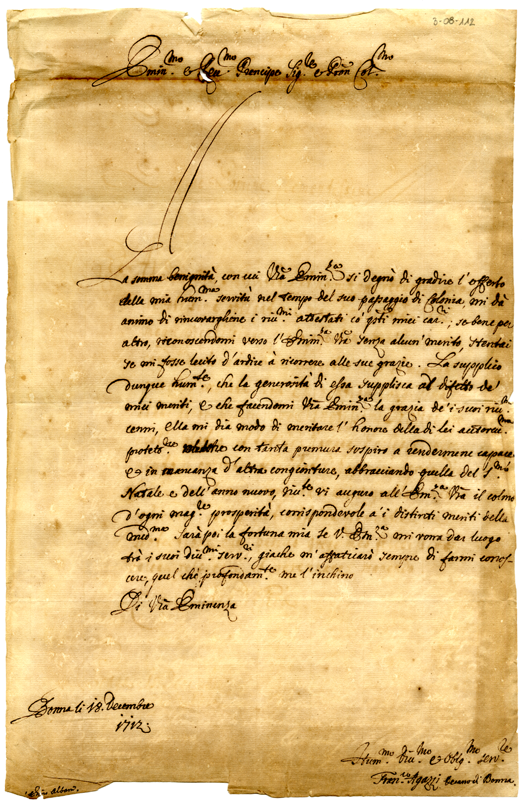 3-08-112
Emin.mo e Reu.mo Principe Sig.re e Pron Col.mo
La somma benignità, con cui Vra Emin.za si degnò di gradire l'offerta
della mia hum.ma servitù nel tempo del suo passaggio di Colonia, mi dà
animo di rinuovarghene i riu.mi attestati cõ q.sti miei car.ri; se bene per
altro, riconoscendomi verso l'Emin.za Vra senza alcun merito,
se mi fosse lecito d'ardire à ricorrere alle sue grazie. La supplico
dunque hum.te, che la generosità di essa supplisca al difetto de'
miei meriti, e che facendomi Vra Emin.za la grazia de' i suoi riu.ti
cenni, ella mi dia modo di meritare l'honore della di lei
protet.ne con tanta premura sospiro a rendermene capace
e in mancanza d'altre congionture, abbracciando quella del S.mo
Natale e dell'anno nuovo, riu.te vi auguro all'Em.za Vra il colmo
d'ogni mag.re prosperità, corrispondevole a' i distinti meriti della
med.ma Sarà poi la fortuna mia se V. Em.za mi vorrà dar luogo
trà i suoi diu.mi serv.ri, giache m'affaticarò sempre di farmi conos=
cere, quel che profondam.te me l'inchino
Di Vra Eminenza
Bonna li 18. Decembre
1712.
Hum.mo Diu.mo e Oblig.mo serv.re
Fran.co Agazzi Decano di Bonna.
Albani